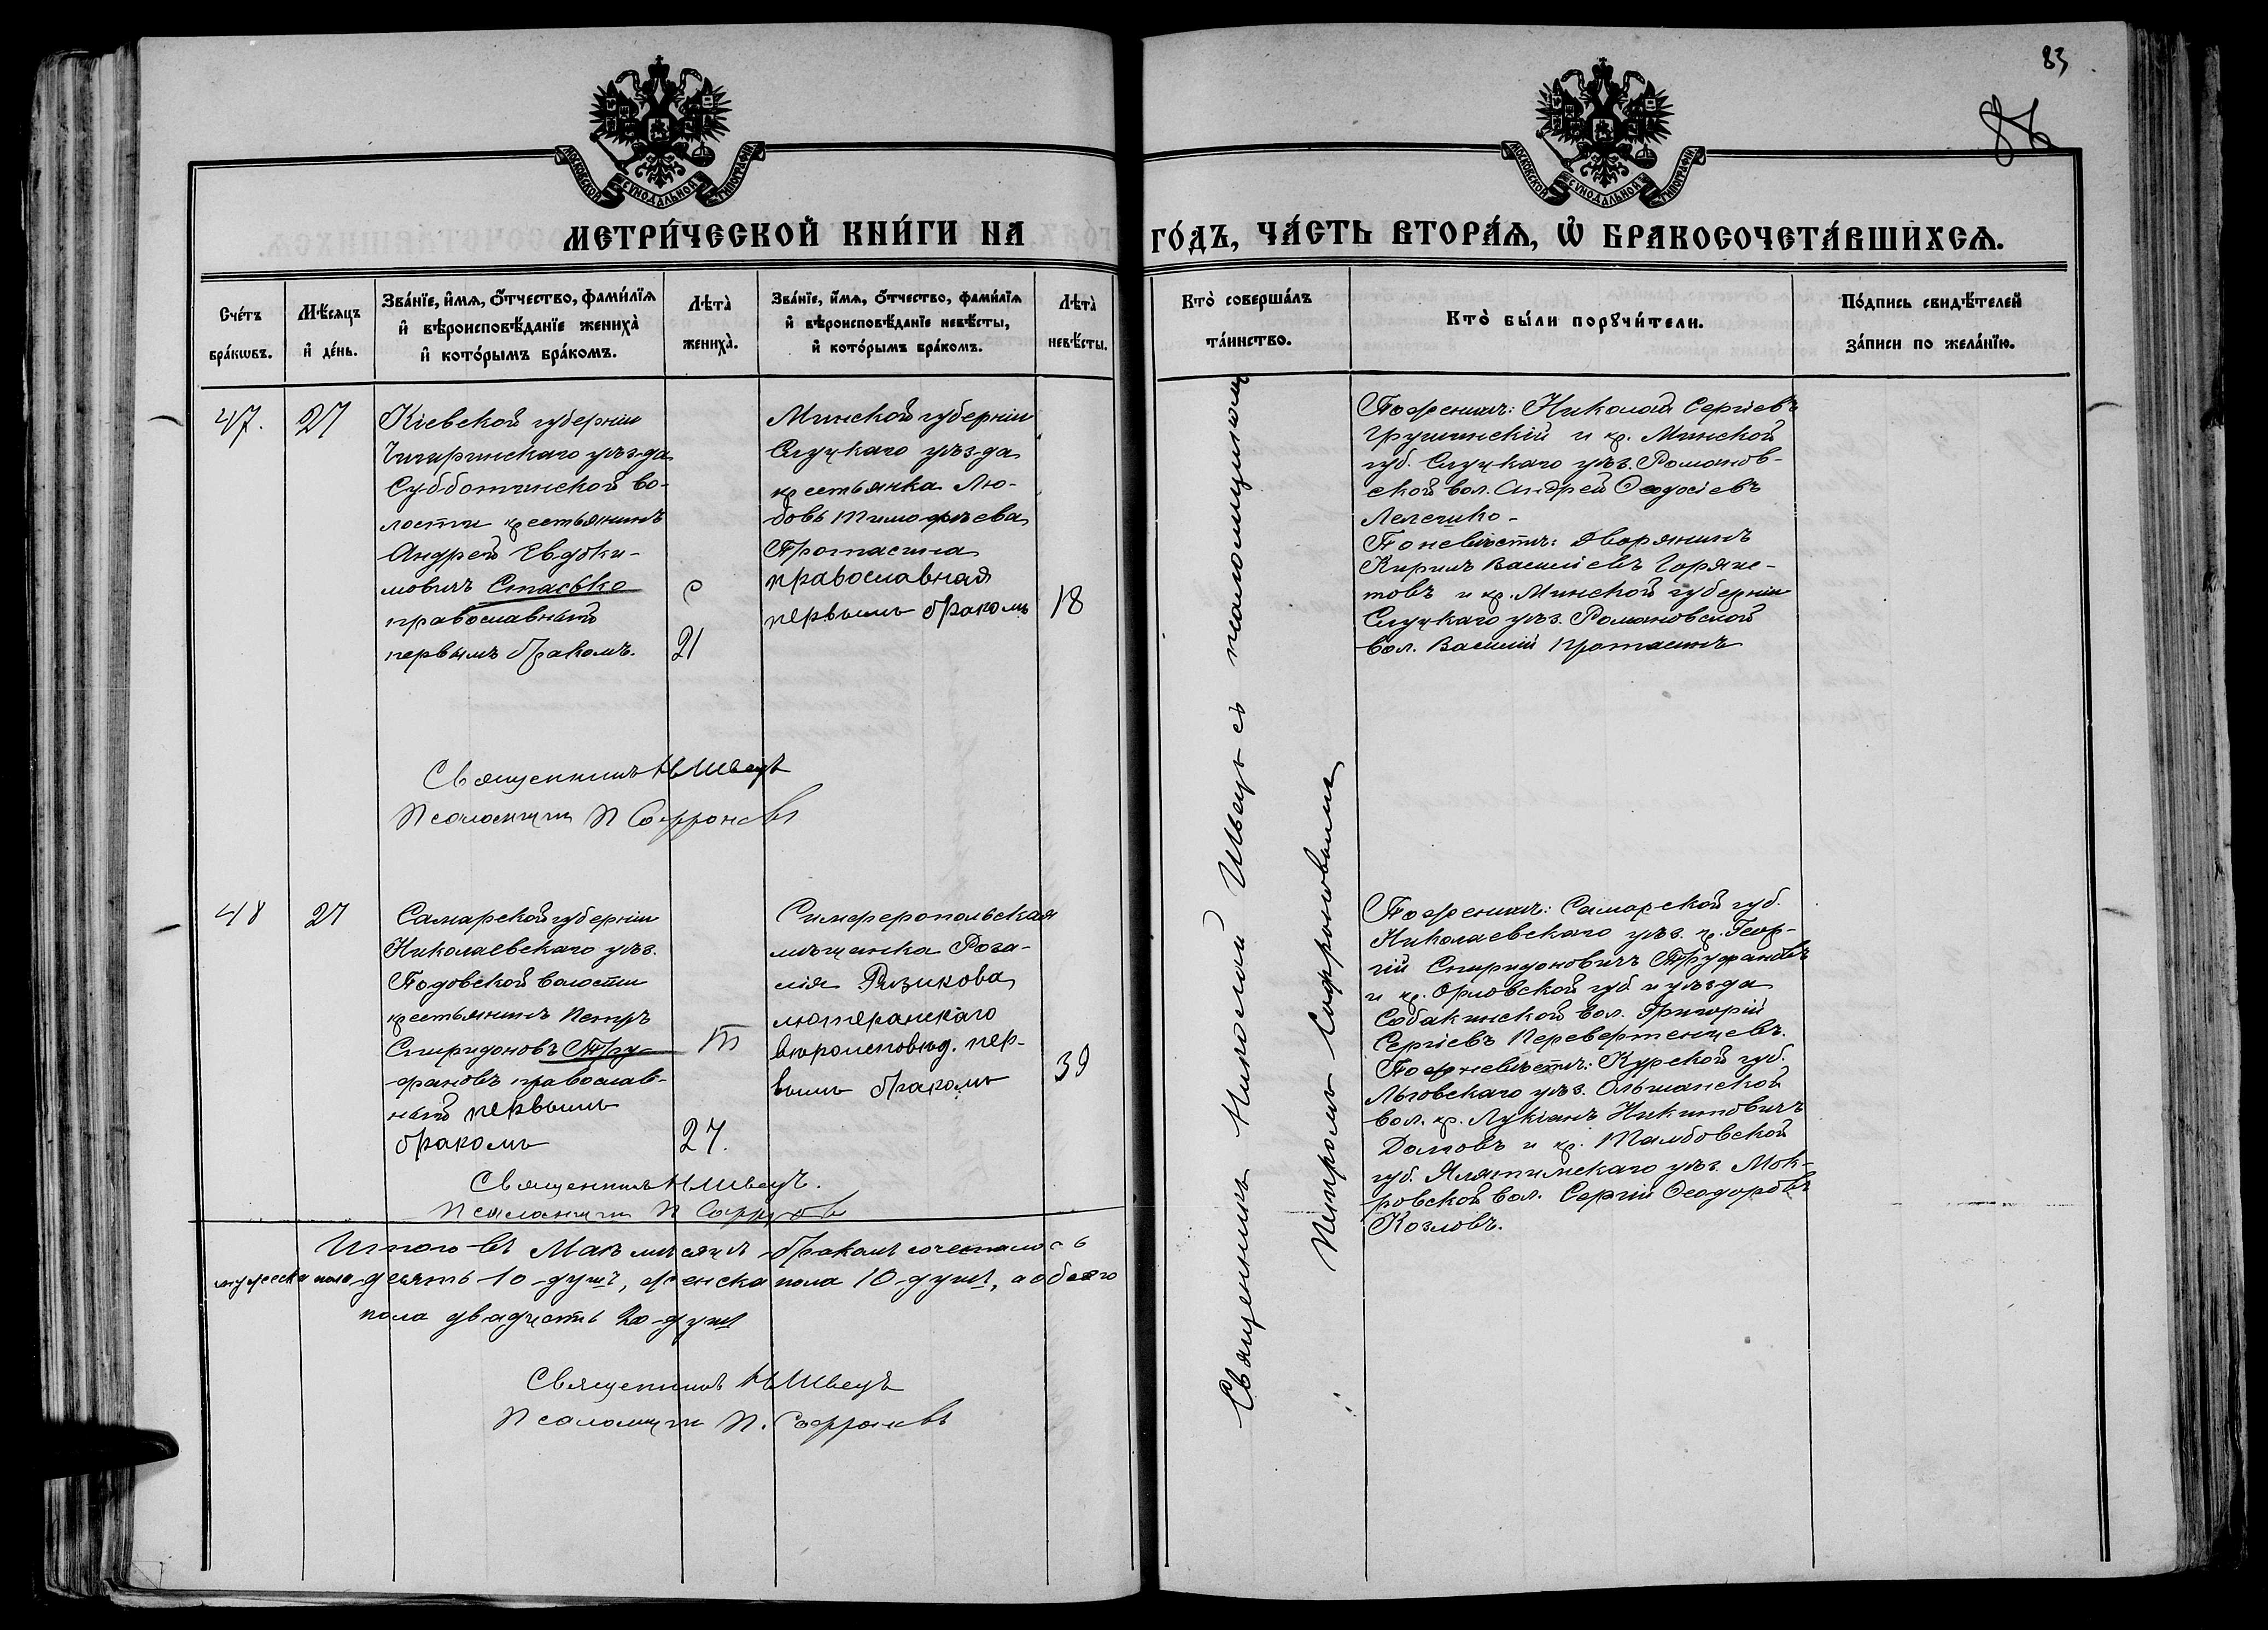 83
МОСКОВСКОЙ СѴНОДАЛЬНОЙ ТИПОГРАФІИ
МОСКОВСКОЙ СѴНОДАЛЬНОЙ ТИПОГРАФІИ
МЕТРИ́ЧЕСКОЙ КНИ́ГИ НА
ГО́ДЪ, ЧА́СТЬ ВТОРА́Ѧ, Ѽ БРАКОСОЧЕТА́ВШИХСѦ.
Сче́тъ
бра́кѡвъ.
Мѣ́сѧцъ
и҆ де́нь.
Зва́нїе, и҆́мѧ, ѻ҆́тчество, фами́лїѧ
и҆ вѣроисповѣ́данїе жениха̀
и҆ кото́рымъ бра́комъ.
Лѣта̀
жениха̀.
Зва́нїе, и҆́мѧ, ѻ҆́тчество, фами́лїѧ
и҆ вѣроисповѣ́данїе невѣ́сты,
и҆ кото́рымъ бра́комъ.
Лѣта̀
невѣ́сты.
Кто̀ соверша́лъ
та́инство.
Кто̀ бы́ли порꙋчи́тели.
По́дпись свидѣ́телей
за́писи по жела́нїю.
47.
27
Кіевской губерніи
Чигиринскаго уѣзда
Субботинской во-
лости крестьянинъ
Андрей Евдоки-
мовичъ Стасько
православный
первымъ бракомъ.
с
21
Минской губерніи
Слуцкаго уѣзда
крестьянка Лю-
бовь Тимофѣева
Протасина
православная
первымъ бракомъ
18
Священникъ Н Швецъ
Псаломщикъ П Софроновъ
Священникъ Николай Швецъ съ псаломщикомъ
Петромъ Софроновымъ
По женихѣ: Николай Сергіевъ
Грушинскій и кр. Минской
губ. Слуцкаго уѣз. Романов-
ской вол. Андрей Ѳеодосіевъ
Лелешко-
По невѣстѣ: Дворянинъ
Кирилъ Василіевъ Горяис-
товъ и кр. Минской губерніи
Слуцкаго уѣз. Романовской
вол. Василій Протасинъ
48
27
Самарской губерніи
Николаевскаго уѣз.
Подовской волости
крестьянинъ Петръ
Спиридоновъ Тру-
фановъ православ-
ный первымъ
бракомъ
т
27.
Симферопольская
мѣщанка Роза-
лія Ризикова
лютеранскаго
вѣроисповѣд. пер-
вымъ бракомъ
39
Священникъ Н Швецъ.
Псаломщикъ П Софроновъ
По женихѣ: Самарской губ.
Николаевскаго уѣз. кр. Геор-
гій Спиридоновичъ Труфановъ
и кр. Орловской губ. и уѣзда
Собакинской вол. Григорій
Сергіевъ Перевертенцевъ.
По невѣстѣ: Курской губ.
Льговскаго уѣз. Ольшанской
вол. кр. Лукіанъ Никитовичъ
Долговъ и кр. Тамбовской
губ. Елатимскаго уѣз. Мок-
ровской вол. Сергій Ѳеодоровъ
Козловъ.
Итого въ Маѣ мѣсяцѣ бракомъ сочеталось
мужеска пола десять 10 душъ, женска пола 10 душъ, а обоего
пола двадцать 20 душъ
Священникъ Н Швецъ
Псаломщикъ П. Софроновъ